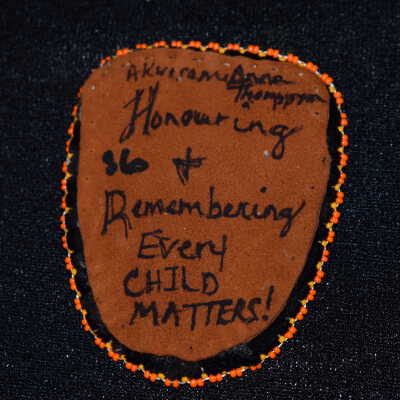 Anna
Thompson
Honouring
+
Remembering
Every
CHILD
MATTERS!